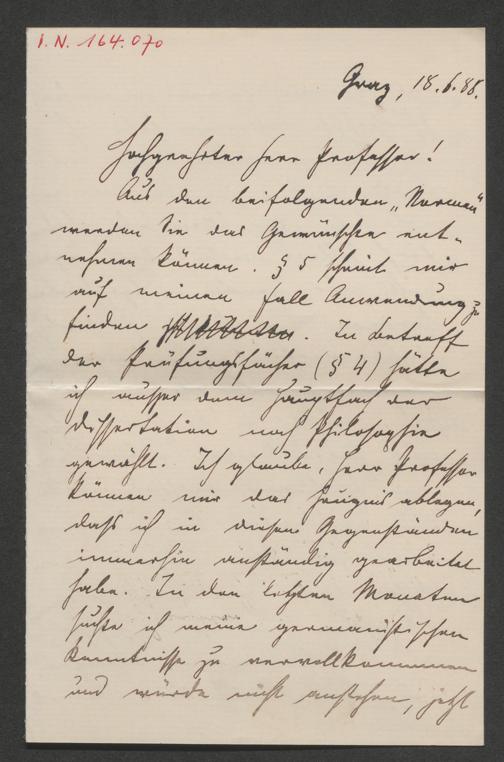 I. N. 164.070
Graz, 18.6.88.
Hochgeehrter Herr Professor!
Aus den beifolgenden „Normen"
werden Sie das Gewünschte ent-
nehmen können. § 5 scheint mir
auf meinen Fall Anwendung zu
finden. In betreff
der Prüfungsfächer (§ 4) hätte
ich ausser dem Hauptfach der
Dissertation noch Philosophie
gewählt. Ich glaube, Herr Professor
können mir das Zeugnis ablegen,
dass ich in diesen Gegenständen
immerhin anständig gearbeitet
habe. In den letzten Monaten
suchte ich meine germanistischen
Kenntnisse zu vervollkommnen
und würde nicht anstehen, jetzt